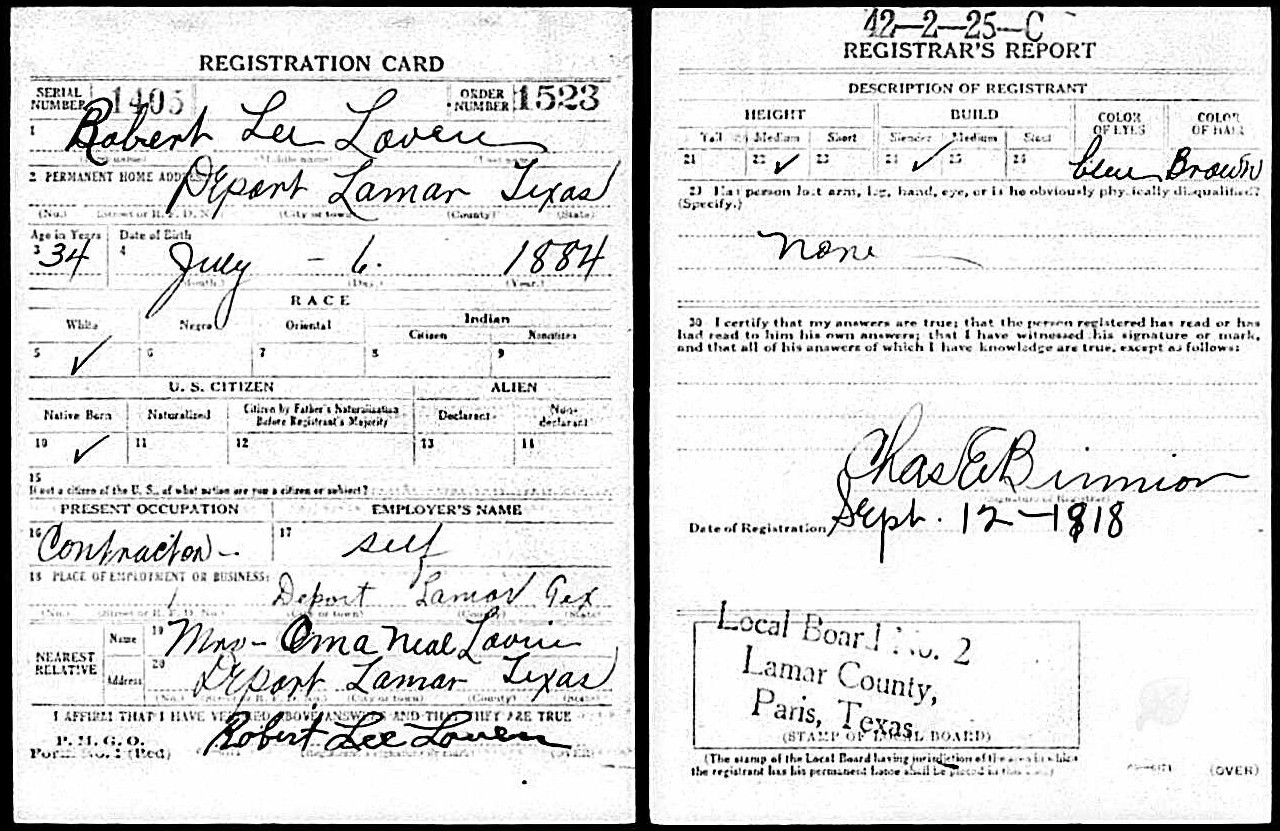 REGISTRATION CARD
SERIAL NUMBER 1405 ORDER NUMBER 1523
1 Robert Lee Loven
(Middle name)
2 PERMANENT HOME ADDRESS
Deport Lamar Texas
(No.) (Street or R. F. D. No.) (City or town) (County) (State)
Age in Years Date of Birth
3 34 4 July - 6. 1884
(Month.) (Day.) (Year.)
RACE
White Negro Oriental Indian
Citizen Noncitizen
5 ✓ 6 7 8 9
U. S. CITIZEN ALIEN
Native Born Naturalized Citizen by Father's Naturalization Before Registrant's Majority Declarant Non-declarant
10 ✓ 11 12 13 14
15
If not a citizen of the U. S., of what nation are you a citizen or subject?
PRESENT OCCUPATION EMPLOYER'S NAME
16 Contractor - 17 self
18 PLACE OF EMPLOYMENT OR BUSINESS:
Deport Lamar Tex
(No.) (Street or R. F. D. No.) (City or town) (County) (State)
NEAREST RELATIVE
Name 19 Mrs - Oma Neal Lovin
Address 20 Deport Lamar Texas
(No.) (Street or R. F. D. No.) (City or town) (County) (State)
I AFFIRM THAT I HAVE VERIFIED ABOVE ANSWERS AND THAT THEY ARE TRUE
P. M. G. O.
Form No. 1 (Red) Robert Lee Loven
42-2-25-C
REGISTRAR'S REPORT
DESCRIPTION OF REGISTRANT
HEIGHT BUILD COLOR OF EYES COLOR OF HAIR
Tall Medium Short Slender Medium Stout
21 22 ✓ 23 24 ✓ 25 26 blue Brown
29 Has person lost arm, leg, hand, eye, or is he obviously physically disqualified?
(Specify.)
none
30 I certify that my answers are true; that the person registered has read or has
had read to him his own answers; that I have witnessed his signature or mark,
and that all of his answers of which I have knowledge are true, except as follows:
Chas E Binnion
(Signature of Registrar)
Date of Registration Sept. 12 - 1918
Local Board No. 2
Lamar County,
Paris, Texas
(STAMP OF LOCAL BOARD)
(The stamp of the Local Board having jurisdiction of the area in which
the registrant has his permanent home shall be placed in this box.)
(OVER)